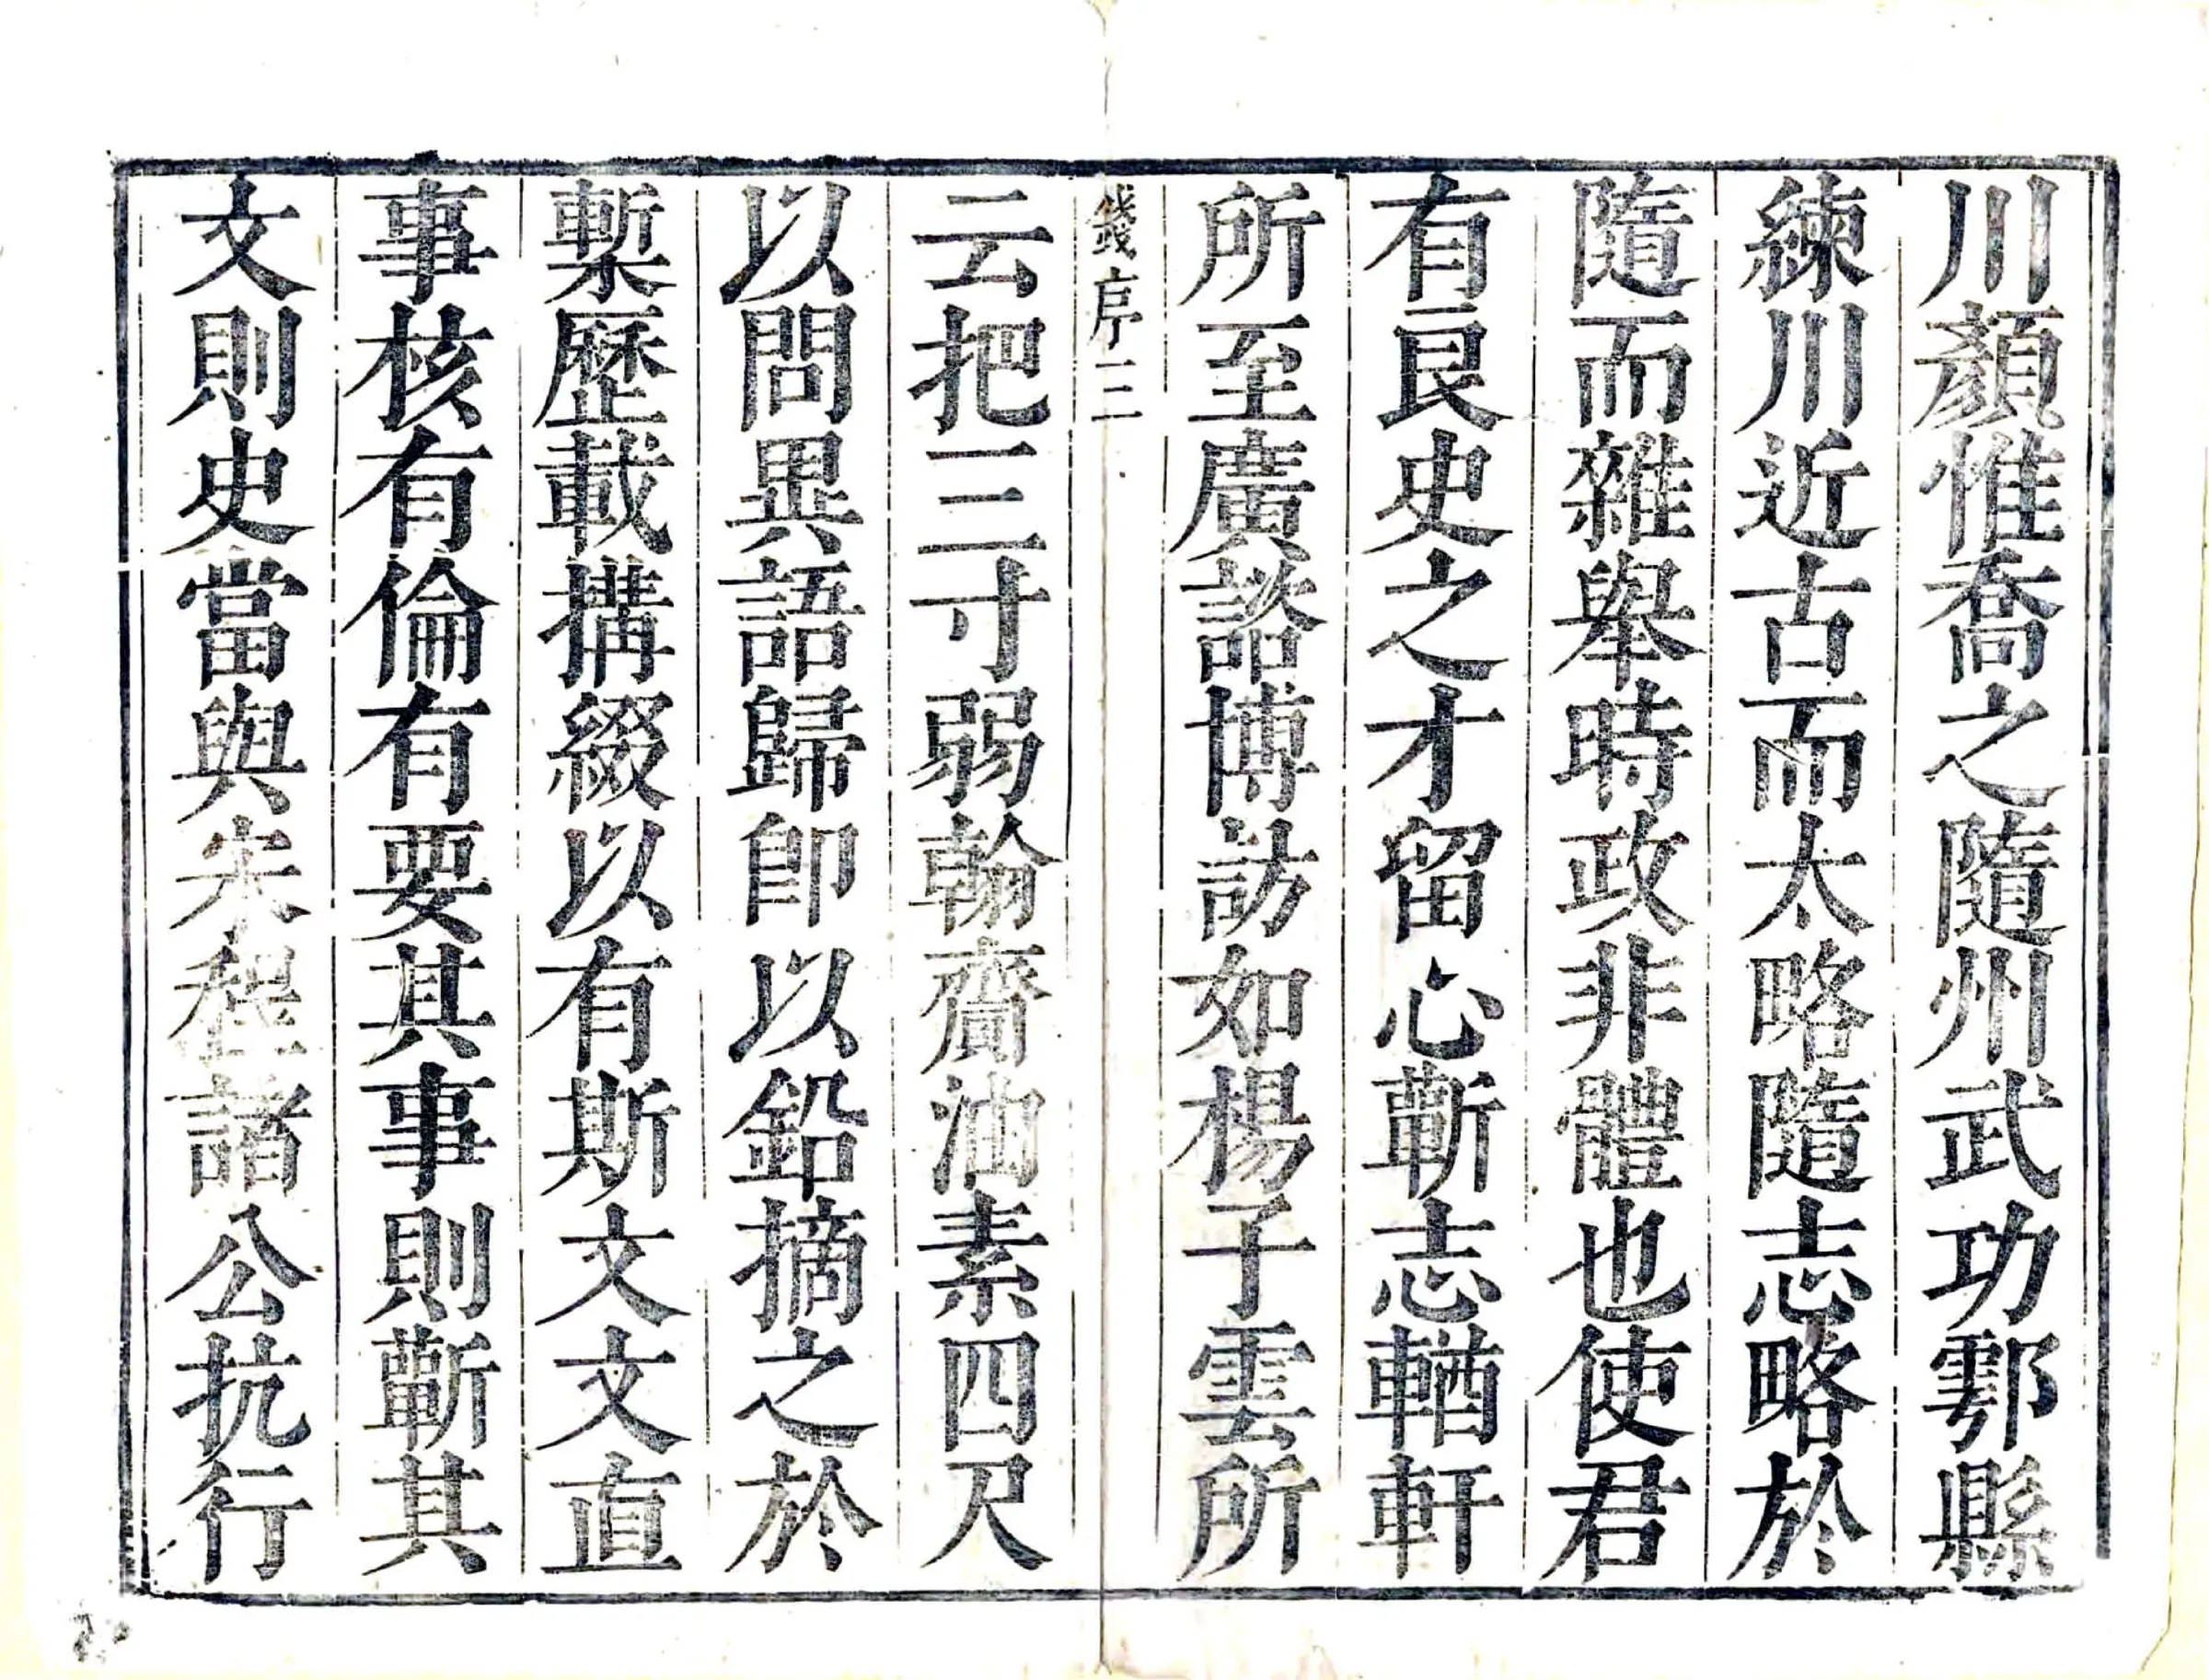 川顏惟喬之隨州武功鄠縣
練川近古而太略隨志略於
隨而雜舉時政非體也使君
有良史之才留心蘄志輶軒
所至廣諮博訪如楊子雲所
錢序三
云把三寸弱翰齎油素四尺
以問異語歸卽以鉛摘之於
槧歷載搆綴以有斯文文直
事核有倫有要其事則蘄其
文則史當與宋程諸公抗行